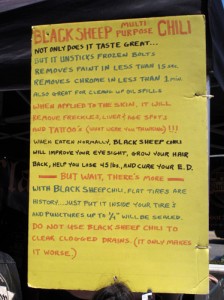 BLACK SHEEP MULTI PURPOSE CHILI
NOT ONLY DOES IT TASTE GREAT...
BUT IT UNSTICKS FROZEN BOLTS
REMOVES PAINT IN LESS THAN 15 SEC.
REMOVES CHROME IN LESS THAN 1 MIN
ALSO GREAT FOR CLEAN UP OIL SPILLS
WHEN APPLIED TO THE SKIN, IT WILL
REMOVE FRECKLES, LIVER/AGE SPOTS
AND TATOO'S (WHAT WERE YOU THINKING) !!!
WHEN EATEN NORMALLY, BLACK SHEEP CHILI
WILL IMPROVE YOUR EYESIGHT, GROW YOUR HAIR
BACK, HELP YOU LOSE 45 LBS, AND CURE YOUR E.D.
— BUT WAIT, THERE'S MORE —
WITH BLACK SHEEP CHILI, FLAT TIRES ARE
HISTORY...JUST PUT IT INSIDE YOUR TIRE'S
AND PUNCTURES UP TO 1/2" WILL BE SEALED.
DO NOT USE BLACK SHEEP CHILI TO
CLEAR CLOGGED DRAINS. (IT ONLY MAKES
IT WORSE.)